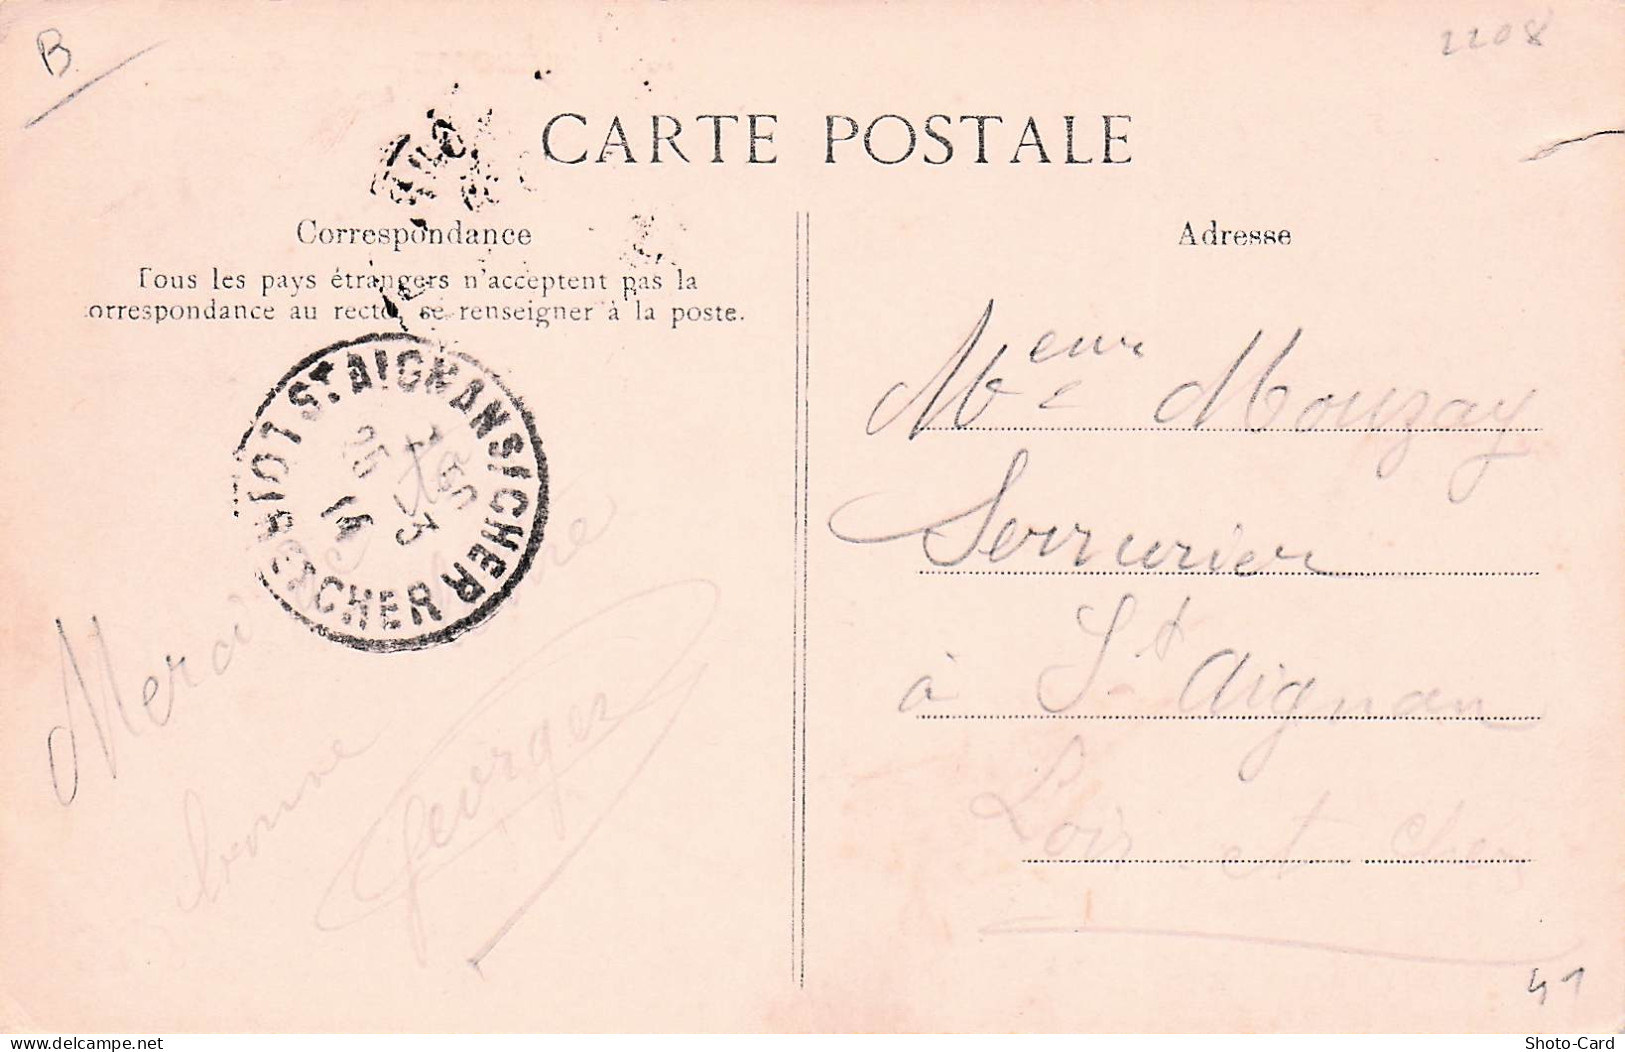 B
2208
CARTE POSTALE
Correspondance
Tous les pays étrangers n'acceptent pas la
correspondance au recto, se renseigner à la poste.
Adresse
ST AIGNAN S/CHER
LOIR-ET-CHER
25
3
14
Merci
bonne
Georges
Mouzay
Serrurier
à St Aignan
Loir et Cher
41
delcampe.net
Shoto-Card